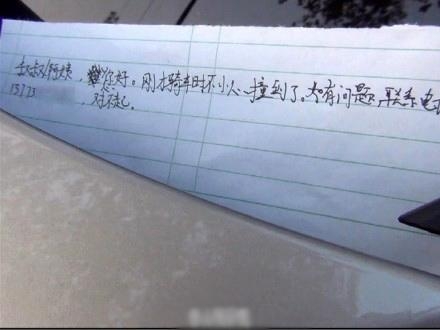 叔叔阿姨，您好。刚才骑车时不小心撞到了。如有问题,联系电
15173
对不起。